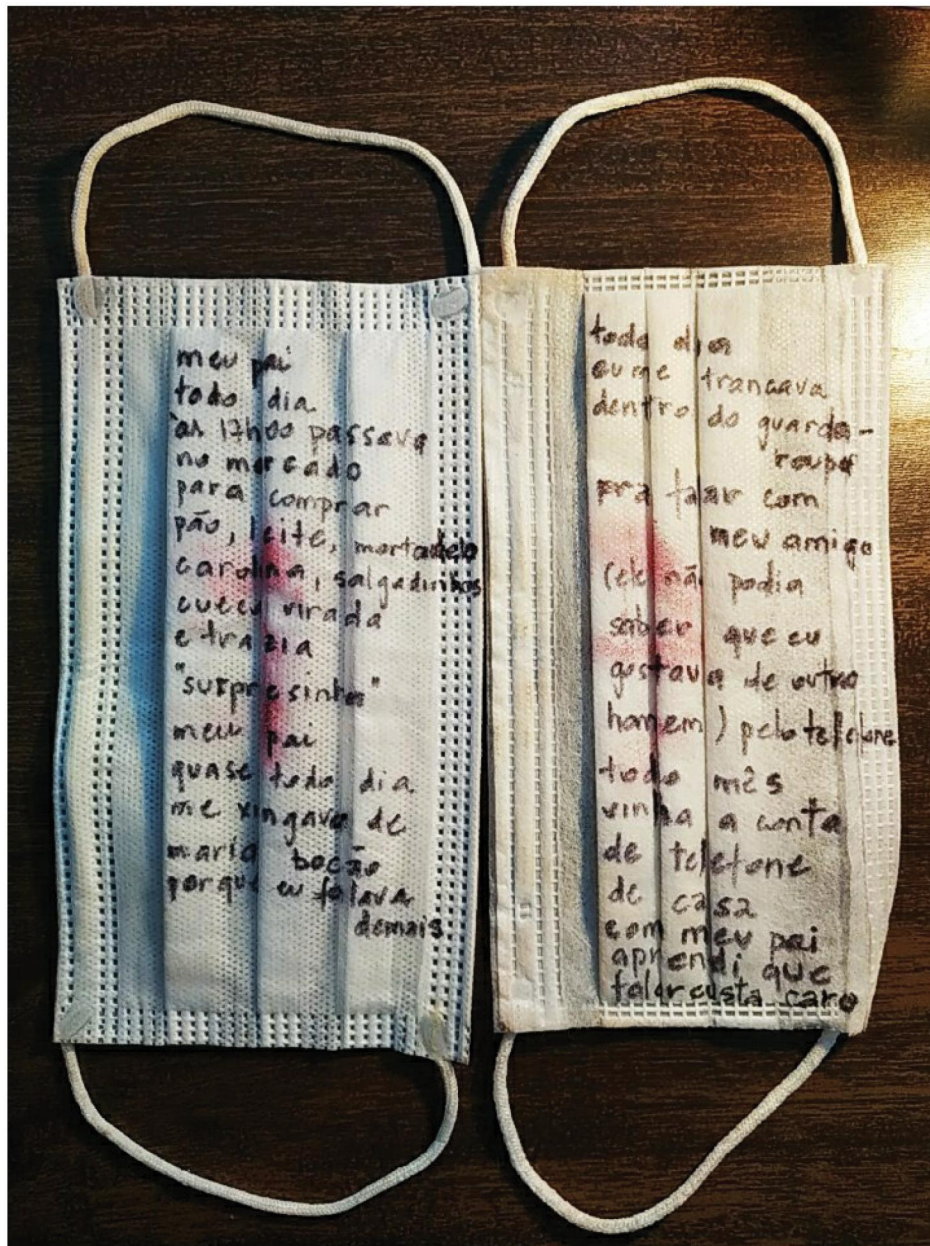 meu pai
todo dia
às 17h00 passava
no mercado
para comprar
pão, leite, mortadela
carolina, salgadinhos
cueca virada
e trazia
"surpresinha"
meu pai
quase todo dia
me xingava de
maria bocão
porque eu falava
demais
todo dia
eu me trancava
dentro do guarda-
roupa
pra falar com
meu amigo
(ele não podia
saber que eu
gostava de outro
homem) pelo telefone
todo mês
vinha a conta
de telefone
de casa
com meu pai
aprendi que
falar custa caro